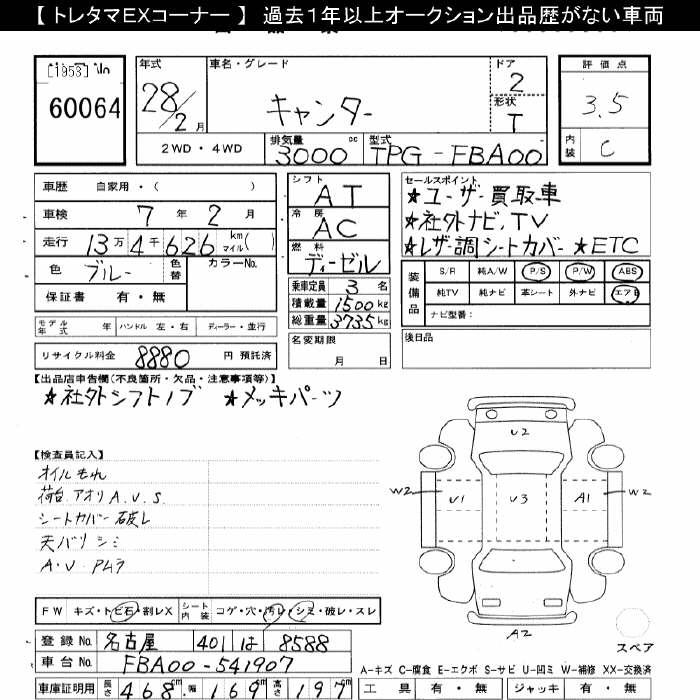 【 トレタマEXコーナー 】 過去1年以上オークション出品歴がない車両
60064
年式
28/2月
車名・グレード
キャンター
ドア
2
形状
T
2WD・4WD
排気量
3000cc
型式
TPG-FBA00
評価点
3.5
内装
C
車歴 自家用・( )
車検 7年 2月
走行 13万4千626 km マイル( )
色 ブルー 色替 カラーNo.
保証書 有・無
モデル年式 年 ハンドル 左・右 ディーラー・並行
リサイクル料金 8880 円 預託済
シフト AT
冷房 AC
燃料 ディーゼル
乗車定員 3名
積載量 1500kg
総重量 3735kg
名変期限
月 日
セールスポイント
★ユーザー買取車
★社外ナビ、TV
★レザー調シートカバー ★ETC
装備品
S/R 純A/W P/S P/W ABS
純TV 純ナビ 革シート 外ナビ エアB
ナビ型番:
後日品
【出品店申告欄(不良箇所・欠品・注意事項等)】
★社外シフトノブ ★メッキパーツ
【検査員記入】
オイルもれ
荷台.アオリ A.U.S.
シートカバー破レ
天バリ シミ
A・U・Pムラ
U2
W2
U1
U3
A1
W2
A2
スペア
FW キズ・トビ石・割レX シート内装 コゲ・穴・汚レ・シミ・破レ・スレ
登録No. 名古屋 401 は 8588
車台No. FBA00-541907
車庫証明用 長さ 468cm 幅 169cm 高さ 197cm
A-キズ C-腐食 E-エクボ S-サビ U-凹ミ W-補修 XX-交換済
工具 有・無 ジャッキ 有・無